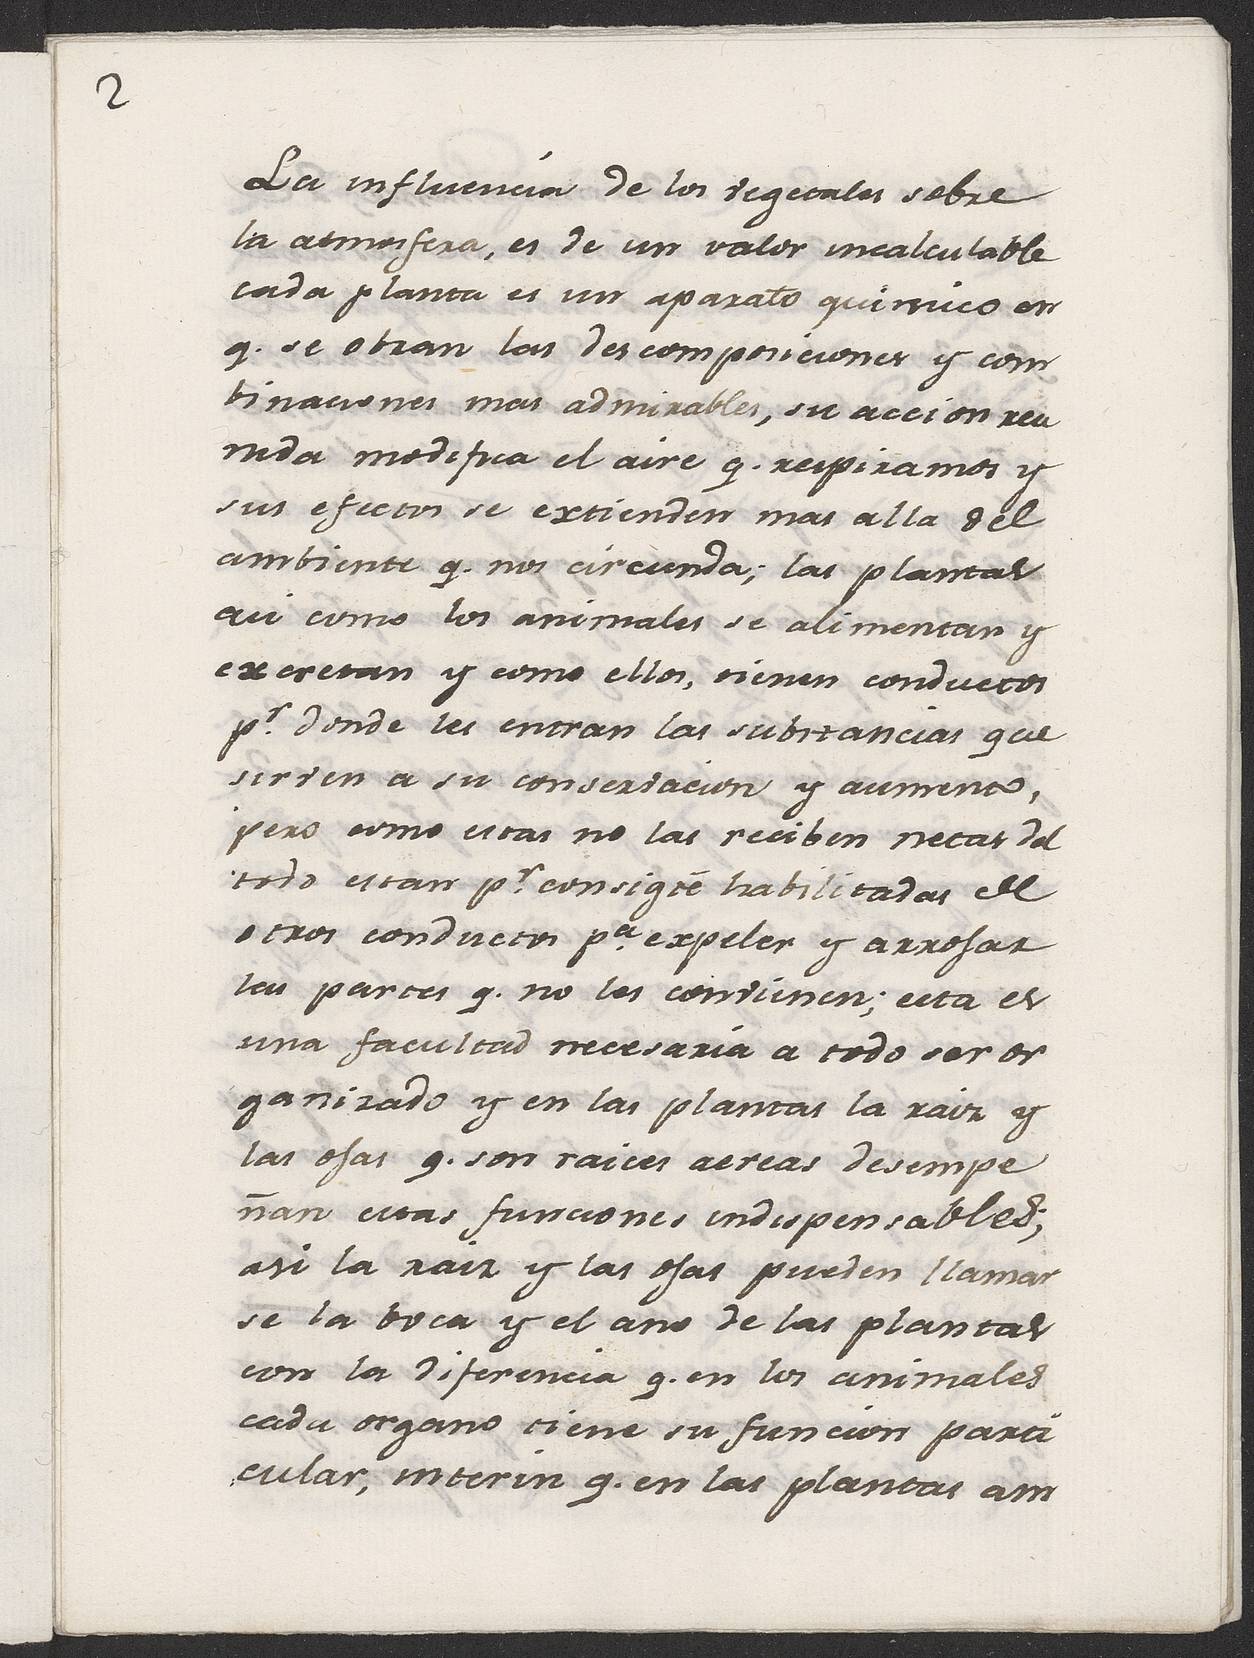 2
La influencia de los vegetales sobre
la atmosfera, es de un valor incalculable
cada planta es un aparato quimico en
q. se obran las descomposiciones y com
binaciones mas admirables, su accion reu
nida modifica el aire q. respiramos y
sus efectos se extienden mas alla del
ambiente q. nos circunda; las plantas
asi como los animales se alimentan y
excretan y como ellos, tienen conductos
pr. donde les entran las substancias que
sirven a su conservacion y aumento,
pero como estas no las reciben netas del
todo estan pr. consigte habilitadas de
otros conductos pa. expeler y arrojar
las partes q. no les convienen; esta es
una facultad necesaria a todo ser or
ganizado y en las plantas la raiz y
las ojas q. son raices aereas desempe
ñan estas funciones indispensables;
asi la raiz y las ojas pueden llamar
se la boca y el ano de las plantas
con la diferencia q. en los animales
cada organo tiene su funcion parti
cular, interin q. en las plantas am